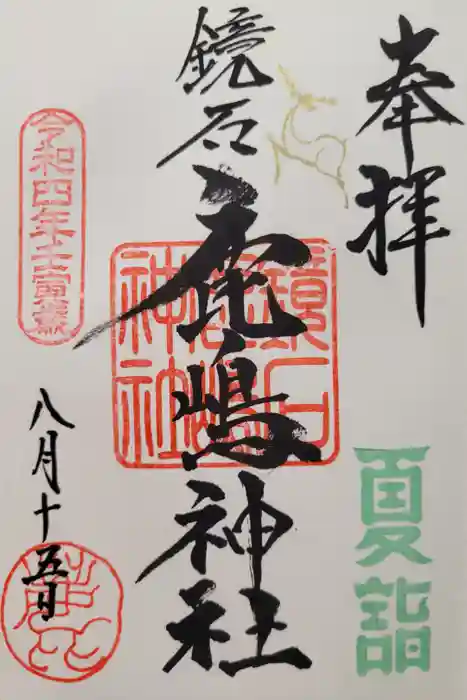 奉拝
夏詣
鏡石
鹿嶋神社
鏡石鹿嶋神社
令和四年壬寅歳
八月十五日